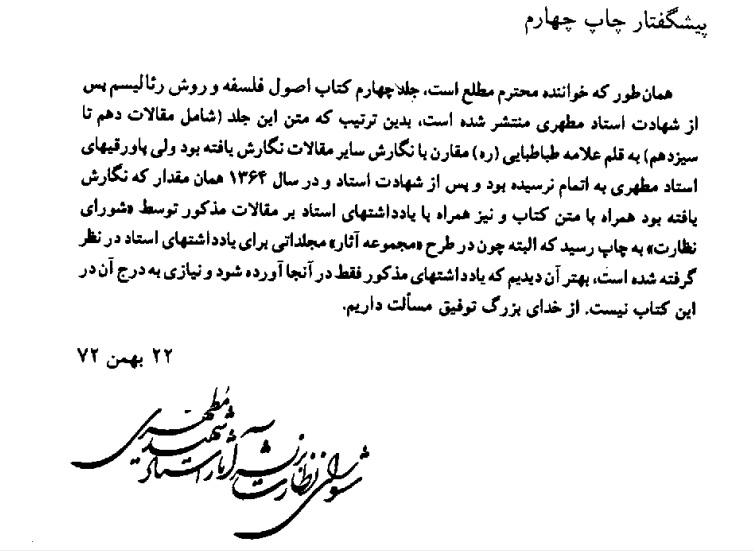 پیشگفتار چاپ چهارم
همان‌طور که خواننده محترم مطلع است، جلد چهارم کتاب اصول فلسفه و روش رئالیسم پس
از شهادت استاد مطهری منتشر شده است، بدین ترتیب که متن این جلد (شامل مقالات دهم تا
سیزدهم) به قلم علامه طباطبایی (ره) مقارن با نگارش سایر مقالات نگارش یافته بود ولی پاورقیهای
استاد مطهری به اتمام نرسیده بود و پس از شهادت استاد و در سال ۱۳۶۴ همان مقدار که نگارش
یافته بود همراه با متن کتاب و نیز همراه با یادداشتهای استاد بر مقالات مذکور توسط «شورای
نظارت» به چاپ رسید که البته چون در طرح «مجموعه آثار» مجلداتی برای یادداشتهای استاد در نظر
گرفته شده است، بهتر آن دیدیم که یادداشتهای مذکور فقط در آنجا آورده شود و نیازی به درج آن در
این کتاب نیست. از خدای بزرگ توفیق مسألت داریم.
۲۲ بهمن ۷۲
شورای نظارت بر نشر آثار استاد شهید مطهری